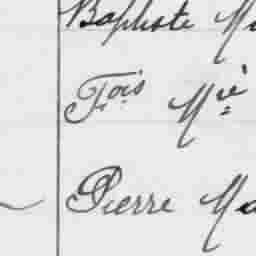 Baptiste M
Fois Mie
Pierre Ma